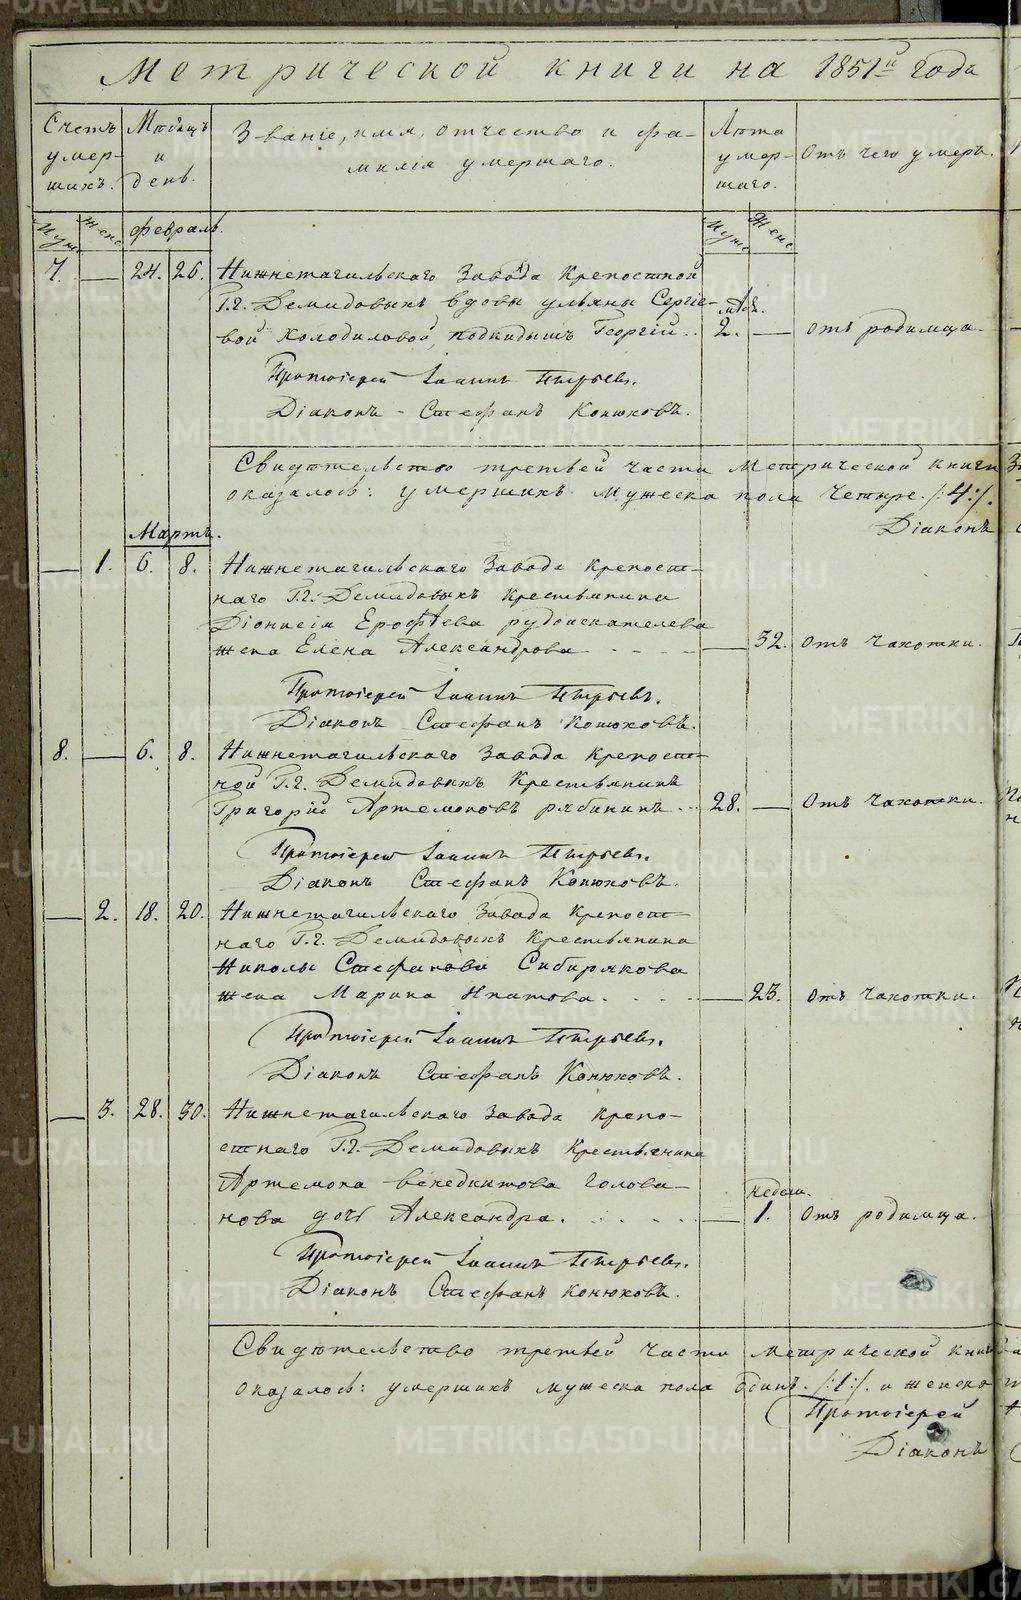 Метрической книги на 1851й годъ
Счетъ умер-шихъ.
Мѣсяцъ и день.
Званіе, имя, отчество и фа-
милія умершаго.
Лѣта умер-шаго.
Отъ чего умеръ.
Муж. Жен. Февраль. Муж. Жен.
7. — 24. 26. Нижнетагильскаго Завода Крепостной
Г.г. Демидовыхъ вдовы Ульяны Сергіе- мѣс.
вой Холодиловой, подкидышъ Георгій.. 2. — отъ родимца.
Протоіерей Іоаннъ Петровъ.
Діаконъ - Стефанъ Конюховъ.
Свидѣтельство третьей части Метрической книги
оказалось: умершихъ мужеска пола четыре. /:4:/.
Діаконъ
Мартъ.
— 1. 6. 8. Нижнетагильскаго Завода Крепост-
наго Г.г. Демидовыхъ Крестьянина
Діонисія Ерофѣева рудоискателева
жена Елена Александрова - - - - — 32. отъ чахотки.
Протоіерей Іоаннъ Петровъ.
Діаконъ Стефанъ Конюховъ.
8. — 6. 8. Нижнетагильскаго Завода Крепост-
ной Г.г. Демидовыхъ Крестьянинъ
Григорій Артемоновъ рябининъ .. 28. — Отъ чахотки.
Протоіерей Іоаннъ Петровъ.
Діаконъ Стефанъ Конюховъ.
— 2. 18. 20. Нижнетагильскаго Завода Крепост-
наго Г.г. Демидовыхъ Крестьянина
Николы Стефанова Сибирякова
жена Марина Ипатова. . . . — 23. отъ чахотки.
Протоіерей Іоаннъ Петровъ.
Діаконъ Стефанъ Конюховъ.
— 3. 28. 30. Нижнетагильскаго Завода Крепо-
стнаго Г.г. Демидовыхъ Крестьянина
Артемона венедиктова Голова- недели.
нова дочь Александра. . . . . — 1. отъ родимца.
Протоіерей Іоаннъ Петровъ.
Діаконъ Стефанъ Конюховъ.
Свидѣтельство третьей части Метрической книги
оказалось: умершихъ мужеска пола одинъ. /:1:/. и женска
Протоіерей
Діаконъ
METRIKI.GASO-URAL.RU